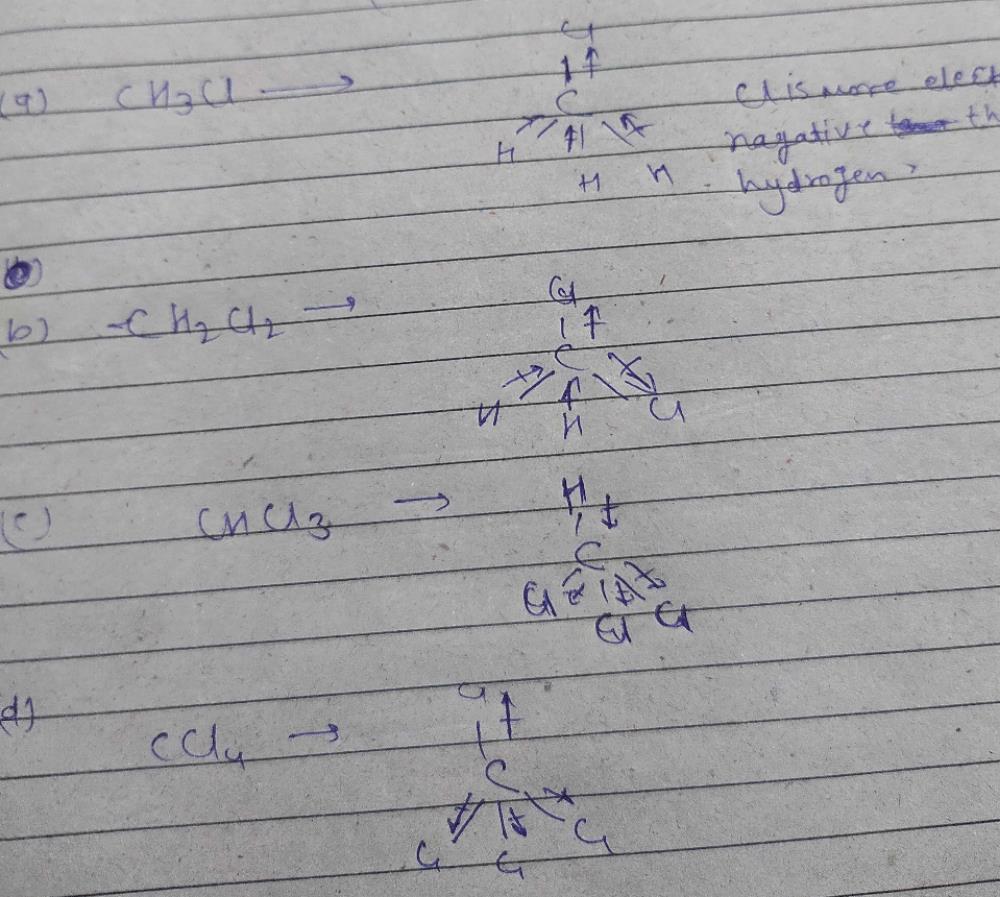 Cl
(a) CH3Cl → C Cl is more elect
H H H negative th
hydrogen
(b)
(b) CH2Cl2 → Cl
C
H H Cl
(c) CHCl3 → H
C
Cl Cl Cl
(d) Cl
CCl4 →
C
Cl Cl Cl